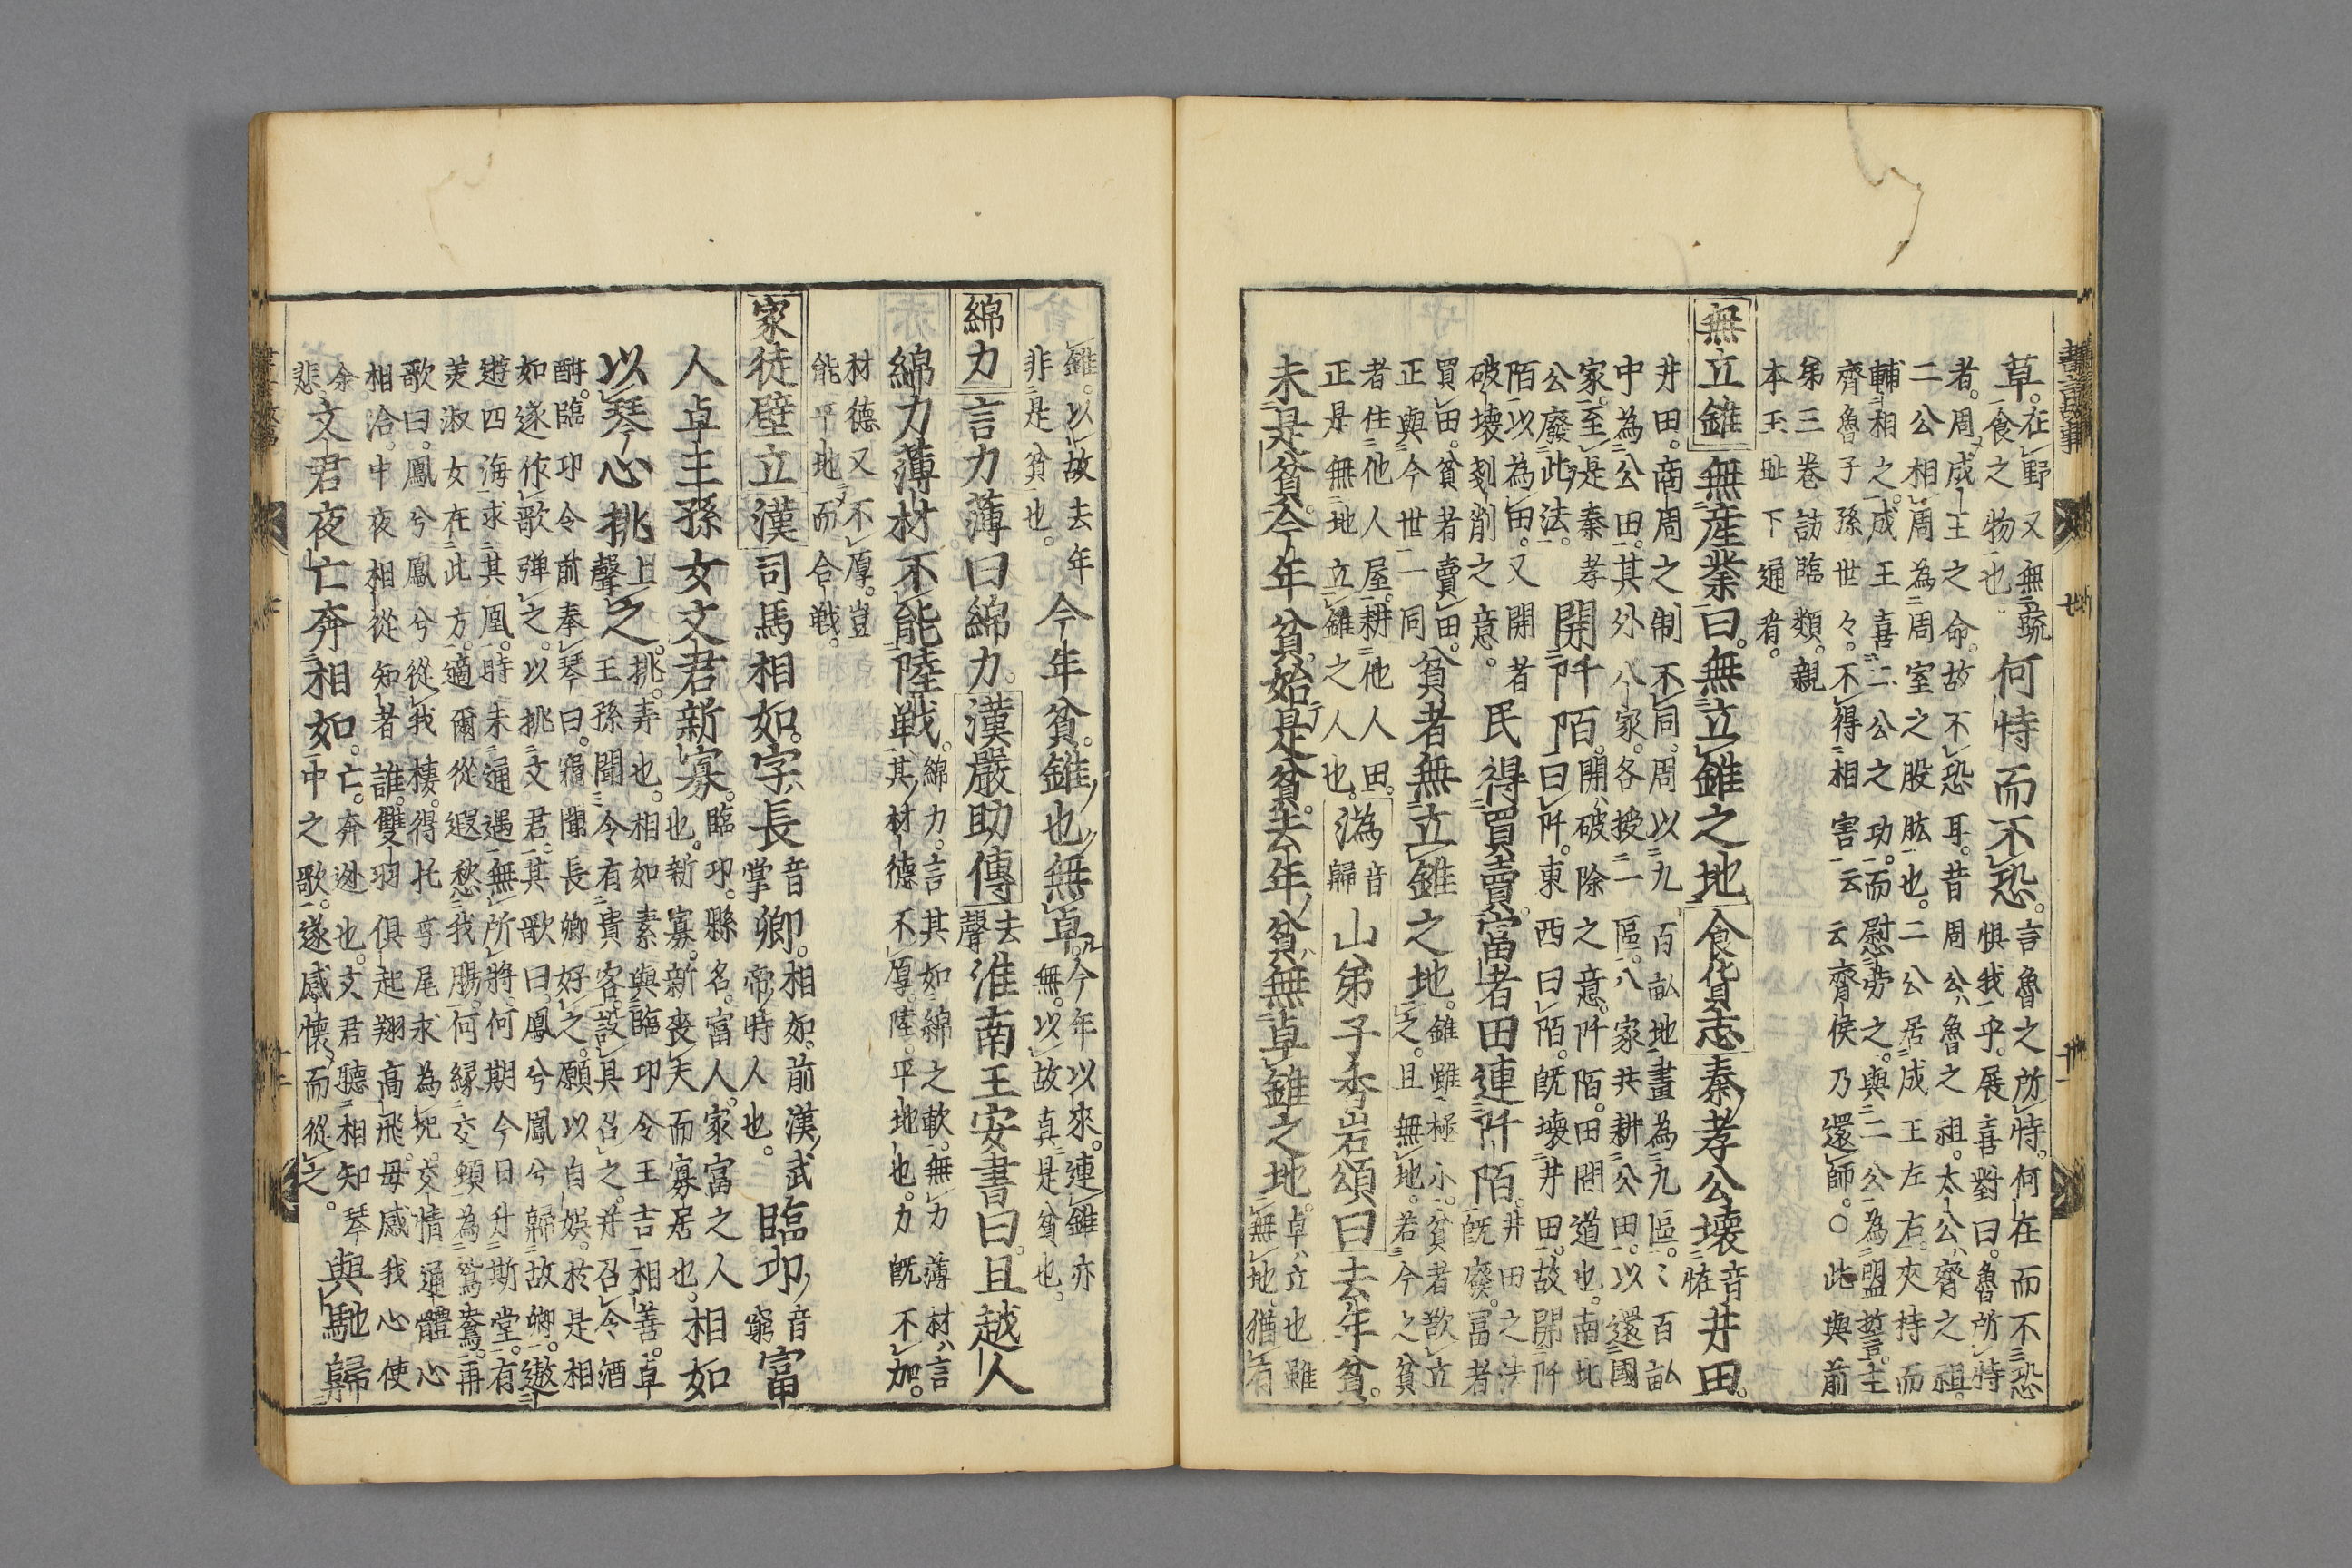 草
在野又無蔬
食之物也
何恃而不恐
言魯之所恃何在而不恐
惧我乎展喜對曰魯所恃
者周成王之命故不恐耳昔周公魯之祖太公齊之祖
二公相周為周室之股肱也二公居成王左右夾持而
輔相之成王喜二公之功而慰勞之與二公為盟誓主
齊魯子孫世々不得相害云云齊侯乃還師○此與前
第三卷訪臨類親
本玉趾下通看
無立錐 無産業曰無立錐之地 食貨志 秦孝公壊
音
恠
井田
井田商周之制不同周以九百畝地畫為九區〻百畝
中為公田其外八家各授一區八家共耕公田以還國
家至是秦孝
公廢此法
開阡陌
開破除之意阡陌田間道也南北
曰阡東西曰陌既壊井田故開阡
陌以為田又開者
破壊剗削之意
民得買賣富者田連阡陌
井田之法
既廢富者
買田貧者賣田
正與今世一同
貧者無立錐之地
錐雖極小貧者欲立
之且無地若今之貧
者住他人屋耕他人田
正是無地立錐之人也
溈
音
歸
山弟子香岩頌曰去年貧
未是貧今年貧始是貧去年貧無卓錐之地
卓立也雖
無地猶有
錐以故去年
非是貧也
今年貧錐也無卓
今年以來連錐亦
無以故真是貧也
綿力 言力薄曰綿力 漢嚴助傳
去
聲
淮南王安書曰且越人
綿力薄材不能陸戦
綿力言其如綿之軟無力薄材言
其材德不厚陸平地也力既不加
材德又不厚豈
能平地而合戦
家徒壁立 漢司馬相如字長
音
掌
卿
相如前漢武
帝時人也
臨邛
音
窮
富
人卓王孫女文君新寡
臨邛縣名富人家富之人
也新寡新喪夫而寡居也
相如
以琴心挑
上
聲
之
挑弄也相如素與臨邛令王吉相善卓
王孫聞令有貴客設具召之并召令酒
酣臨邛令前奉琴曰竊聞長卿好之願以自娯於是相
如遂作歌弾之以挑文君其歌曰鳳兮鳳兮歸故郷遨
遊四海求其凰時未通遇無所將何期今日升斯堂有
羙淑女在此方適爾從遐愁我腸何縁交頸為鴛鴦再
歌曰鳳兮鳳兮從我棲得托孳尾求為妃交情通體心
相洽中夜相從知者誰雙羽俱起翔高飛毋感我心使
余
悲
文君夜亡奔相如
亡奔迯也文君聽相知琴
中之歌遂感懷而從之
與馳歸